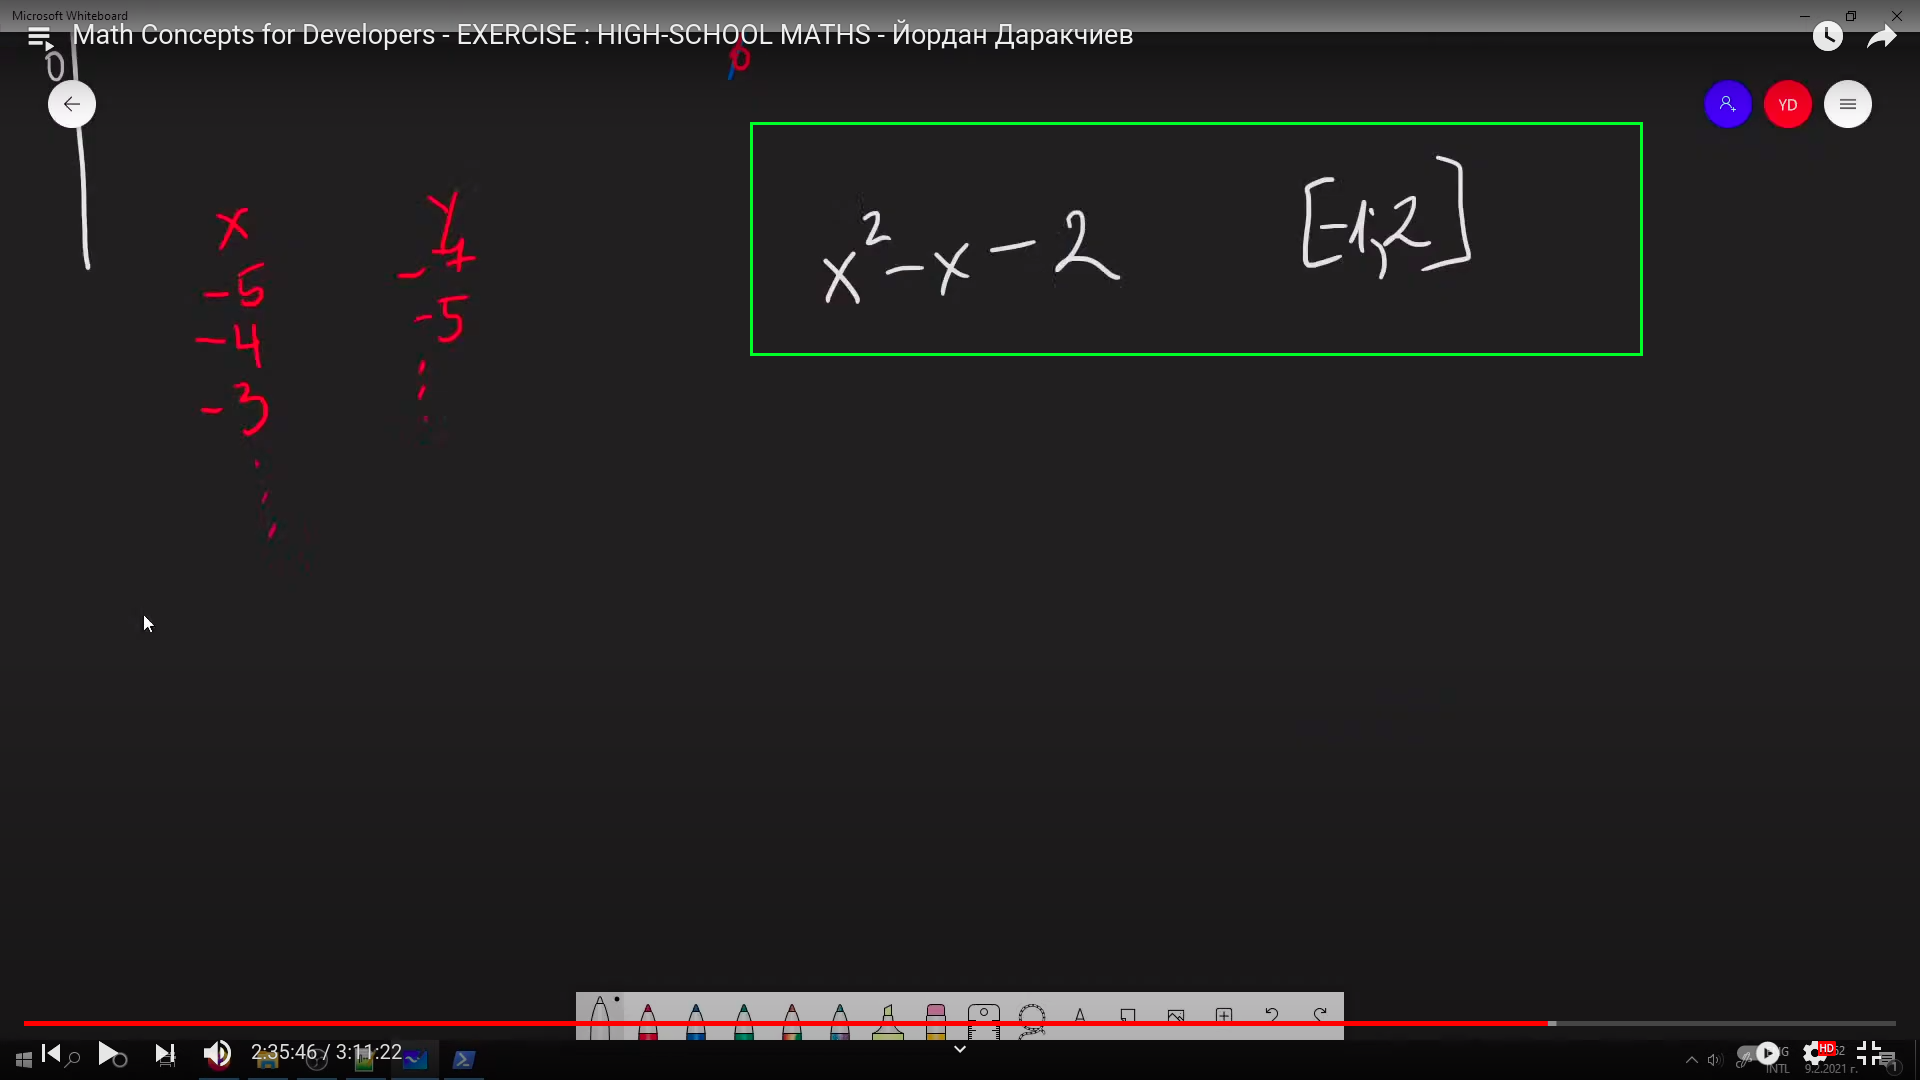 Microsoft Whiteboard
Math Concepts for Developers - EXERCISE : HIGH-SCHOOL MATHS - Йордан Даракчиев
0
YD
x y
-5 -7
-4 -5
-3
x² - x - 2 [-1; 2]
2:35:46 / 3:11:22
HD
INTL 9.2.2021 г.
1